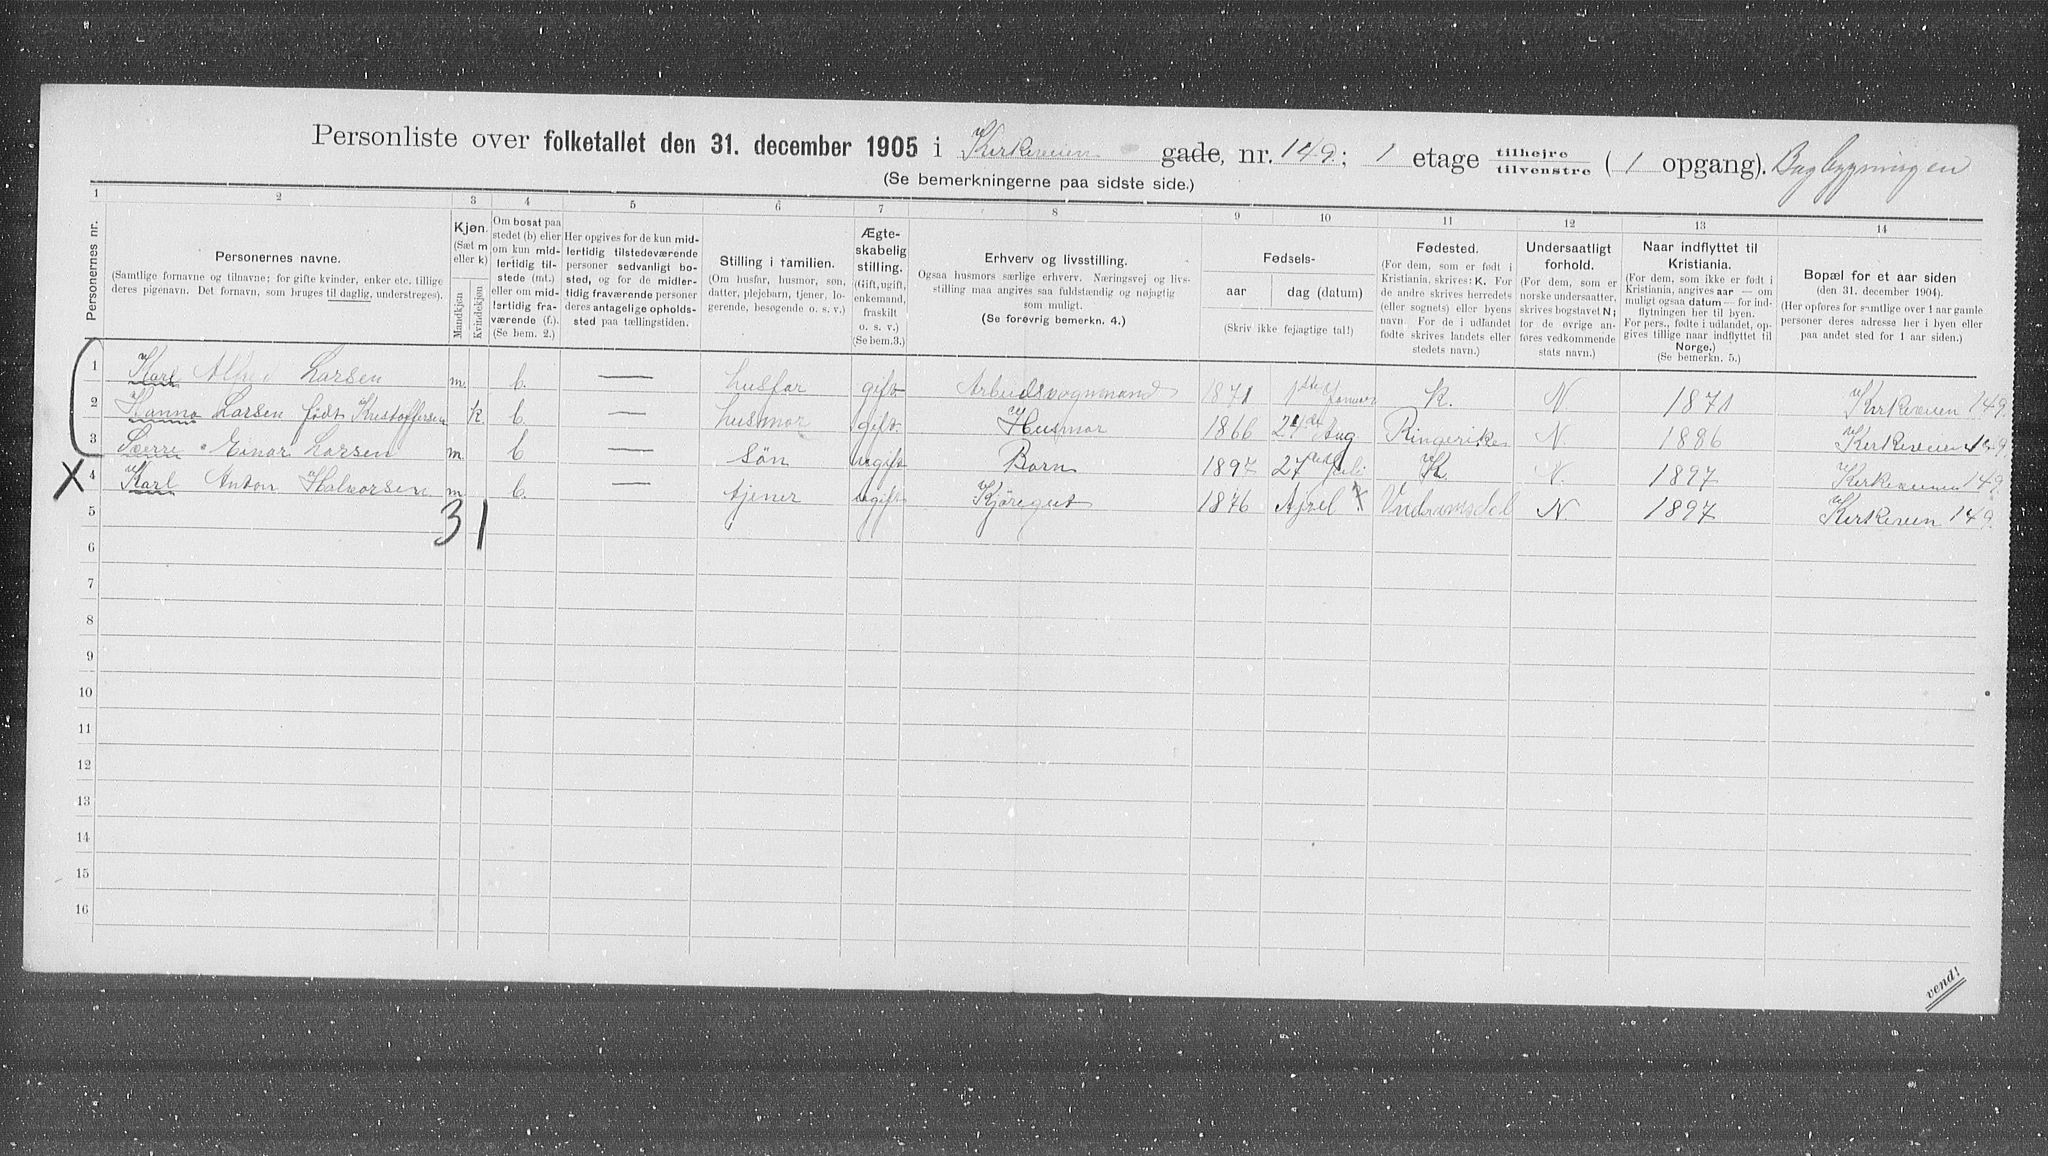 Personliste over folketallet den 31. december 1905 i Kirkeveien gade, nr. 149; 1 etage tilhøjre tilvenstre ( 1 opgang). Bagbygningen
(Se bemerkningerne paa sidste side.)
1 2 3 4 5 6 7 8 9 10 11 12 13 14
Personernes nr.
Personernes navne.
(Samtlige fornavne og tilnavne; for gifte kvinder, enker etc. tillige
deres pigenavn. Det fornavn, som bruges til daglig, understreges).
Kjøn.
(Sæt m
eller k)
Mandkjøn
Kvindekjøn
Om bosat paa
stedet (b) eller
om kun mid-
lertidig til-
stede (mt.)
eller om mid-
lertidig fra-
værende (f.).
(Se bem. 2.)
Her opgives for de kun mid-
lertidig tilstedeværende
personer sedvanligt bo-
sted, og for de midler-
tidig fraværende personer
deres antagelige opholds-
sted paa tællingstiden.
Stilling i familien.
(Om husfar, husmor, søn,
datter, plejebarn, tjener, lo-
gerende, besøgende o. s. v.)
Ægte-
skabelig
stilling.
(Gift, ugift,
enkemand,
fraskilt
o. s. v.)
(Se bem.3.)
Erhverv og livsstilling.
Ogsaa husmors særlige erhverv. Næringsvej og livs-
stilling maa angives saa fuldstændig og nøjagtig
som muligt.
(Se forøvrig bemerkn. 4.)
Fødsels-
aar
dag (datum)
(Skriv ikke fejagtige tal!)
Fødested.
(For dem, som er født i
Kristiania, skrives: K. For
de andre skrives herredets
(eller sognets) eller byens
navn. For de i udlandet
fødte skrives landets eller
stedets navn.)
Undersaatligt
forhold.
(For dem, som er
norske undersaatter,
skrives bogstavet N;
for de øvrige an-
føres vedkommende
stats navn.)
Naar indflyttet til
Kristiania.
(For dem, som ikke er født i
Kristiania, angives aar — om
muligt ogsaa datum — for ind-
flytningen her til byen.
For pers., fødte i udlandet, op-
gives tillige naar indflyttet til
Norge.)
(Se bemerkn. 5.)
Bopæl for et aar siden
(den 31. december 1904).
(Her opføres for samtlige over 1 aar gamle
personer deres adresse her i byen eller
paa andet sted for 1 aar siden.)
1 Karl Alfred Larsen m. b. — husfar gift Arbeidsvognmand 1871 1ste Januar K. N 1871 Kirkeveien 149.
2 Hanna Larsen født Kristoffersen k. b. — husmor gift. Husmor 1866 24de Aug Ringerike N. 1886 Kirkeveien 149
3 Sverre Einar Larsen m. b — søn ugift Barn 1897 27de Juli K. N. 1897 Kirkeveien 149.
X 4 Karl Anton Halvorsen m b. — tjener ugift Kjøregut 1876 April X N 1897 Kirkeveien 149.
5 3 1
6
7
8
9
10
11
12
13
14
15
16
vend!